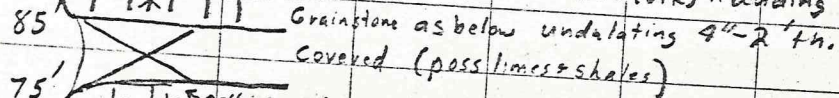 85' Grainstone as below undulating 4"-2' th.
Covered (poss limes & shales)
75'